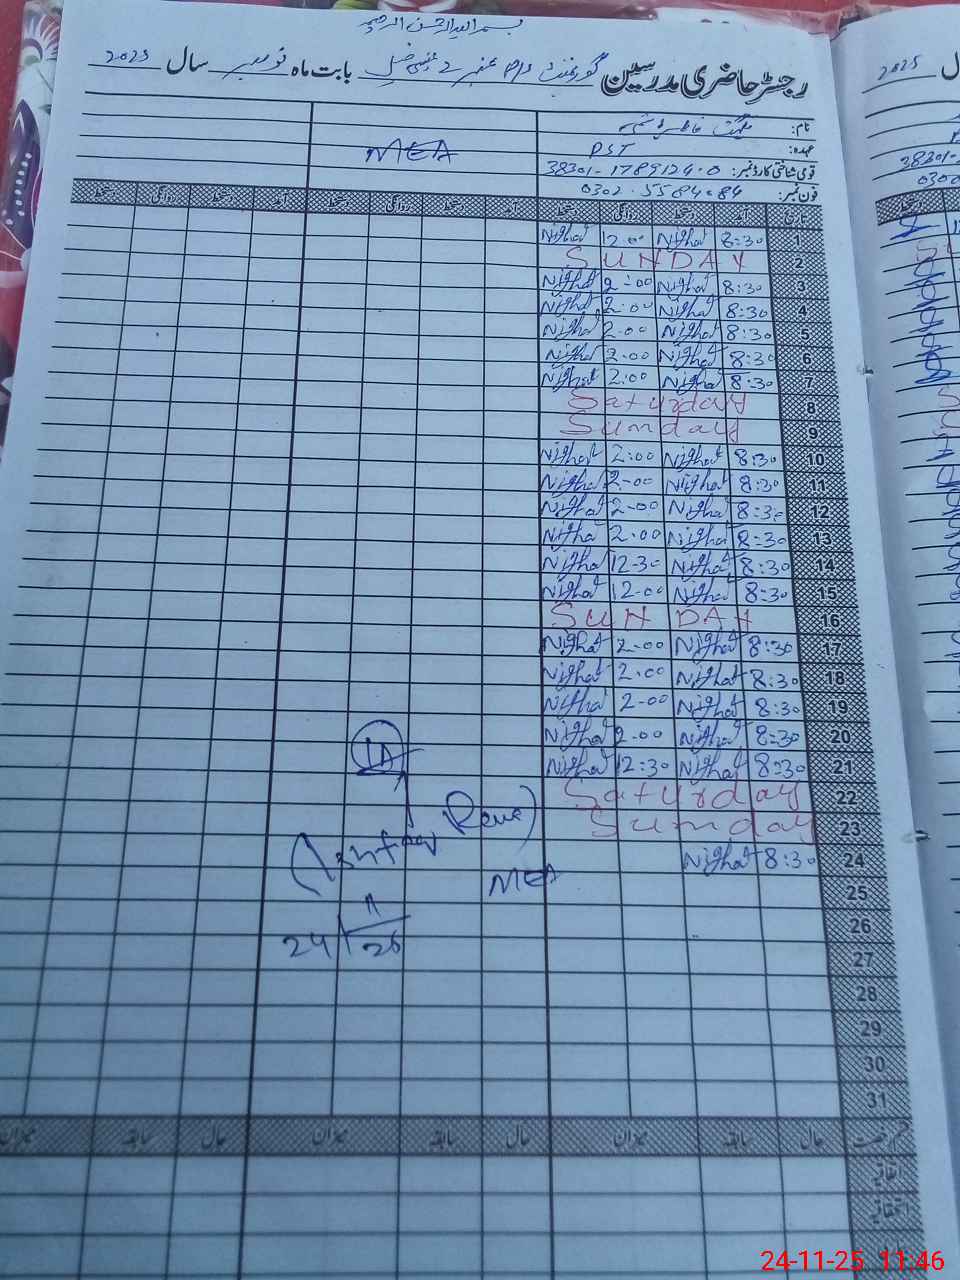 بسم اللہ الرحمن الرحیم
رجسٹر حاضری مدرسین گورنمنٹ بابت ماہ نومبر سال 2025
نام:
عہدہ: PST
MEA
قومی شناختی کارڈ نمبر: 38301-1789124-0
فون نمبر: 0302.5584084
تاریخ آمد دستخط روانگی دستخط آمد دستخط روانگی دستخط آمد روانگی دستخط
1 8:30 Nighat 12.00 Nighat
2 SUNDAY
3 8:30 Nighat 2:00 Nighat
4 8:30 Nighat 2:00 Nighat
5 8:30 Nighat 2.00 Nighat
6 8:30 Nighat 2.00 Nighat
7 8:30 Nighat 2:00 Nighat
8 Saturday
9 Sunday
10 8:30 Nighat 2:00 Nighat
11 8:30 Nighat 2-00 Nighat
12 8:30 Nighat 2-00 Nighat
13 8:30 Nighat 2.00 Nighat
14 8:30 Nighat 12-30 Nighat
15 8:30 Nighat 12-00 Nighat
16 SUNDAY
17 8:30 Nighat 2-00 Nighat
18 8:30 Nighat 2.00 Nighat
19 8:30 Nighat 2-00 Nighat
20 8:30 Nighat 2.00 Nighat
21 8:30 Nighat 12:30 Nighat
22 Saturday
23 Sunday
24 8:30 Nighat
25
MEA
26
27
24 11 25
28
29
30
31
قسم رخصت حال سابقہ میزان حال سابقہ میزان حال سابقہ میزان
اتفاقیہ
استحقاقیہ
24-11-25 11:46